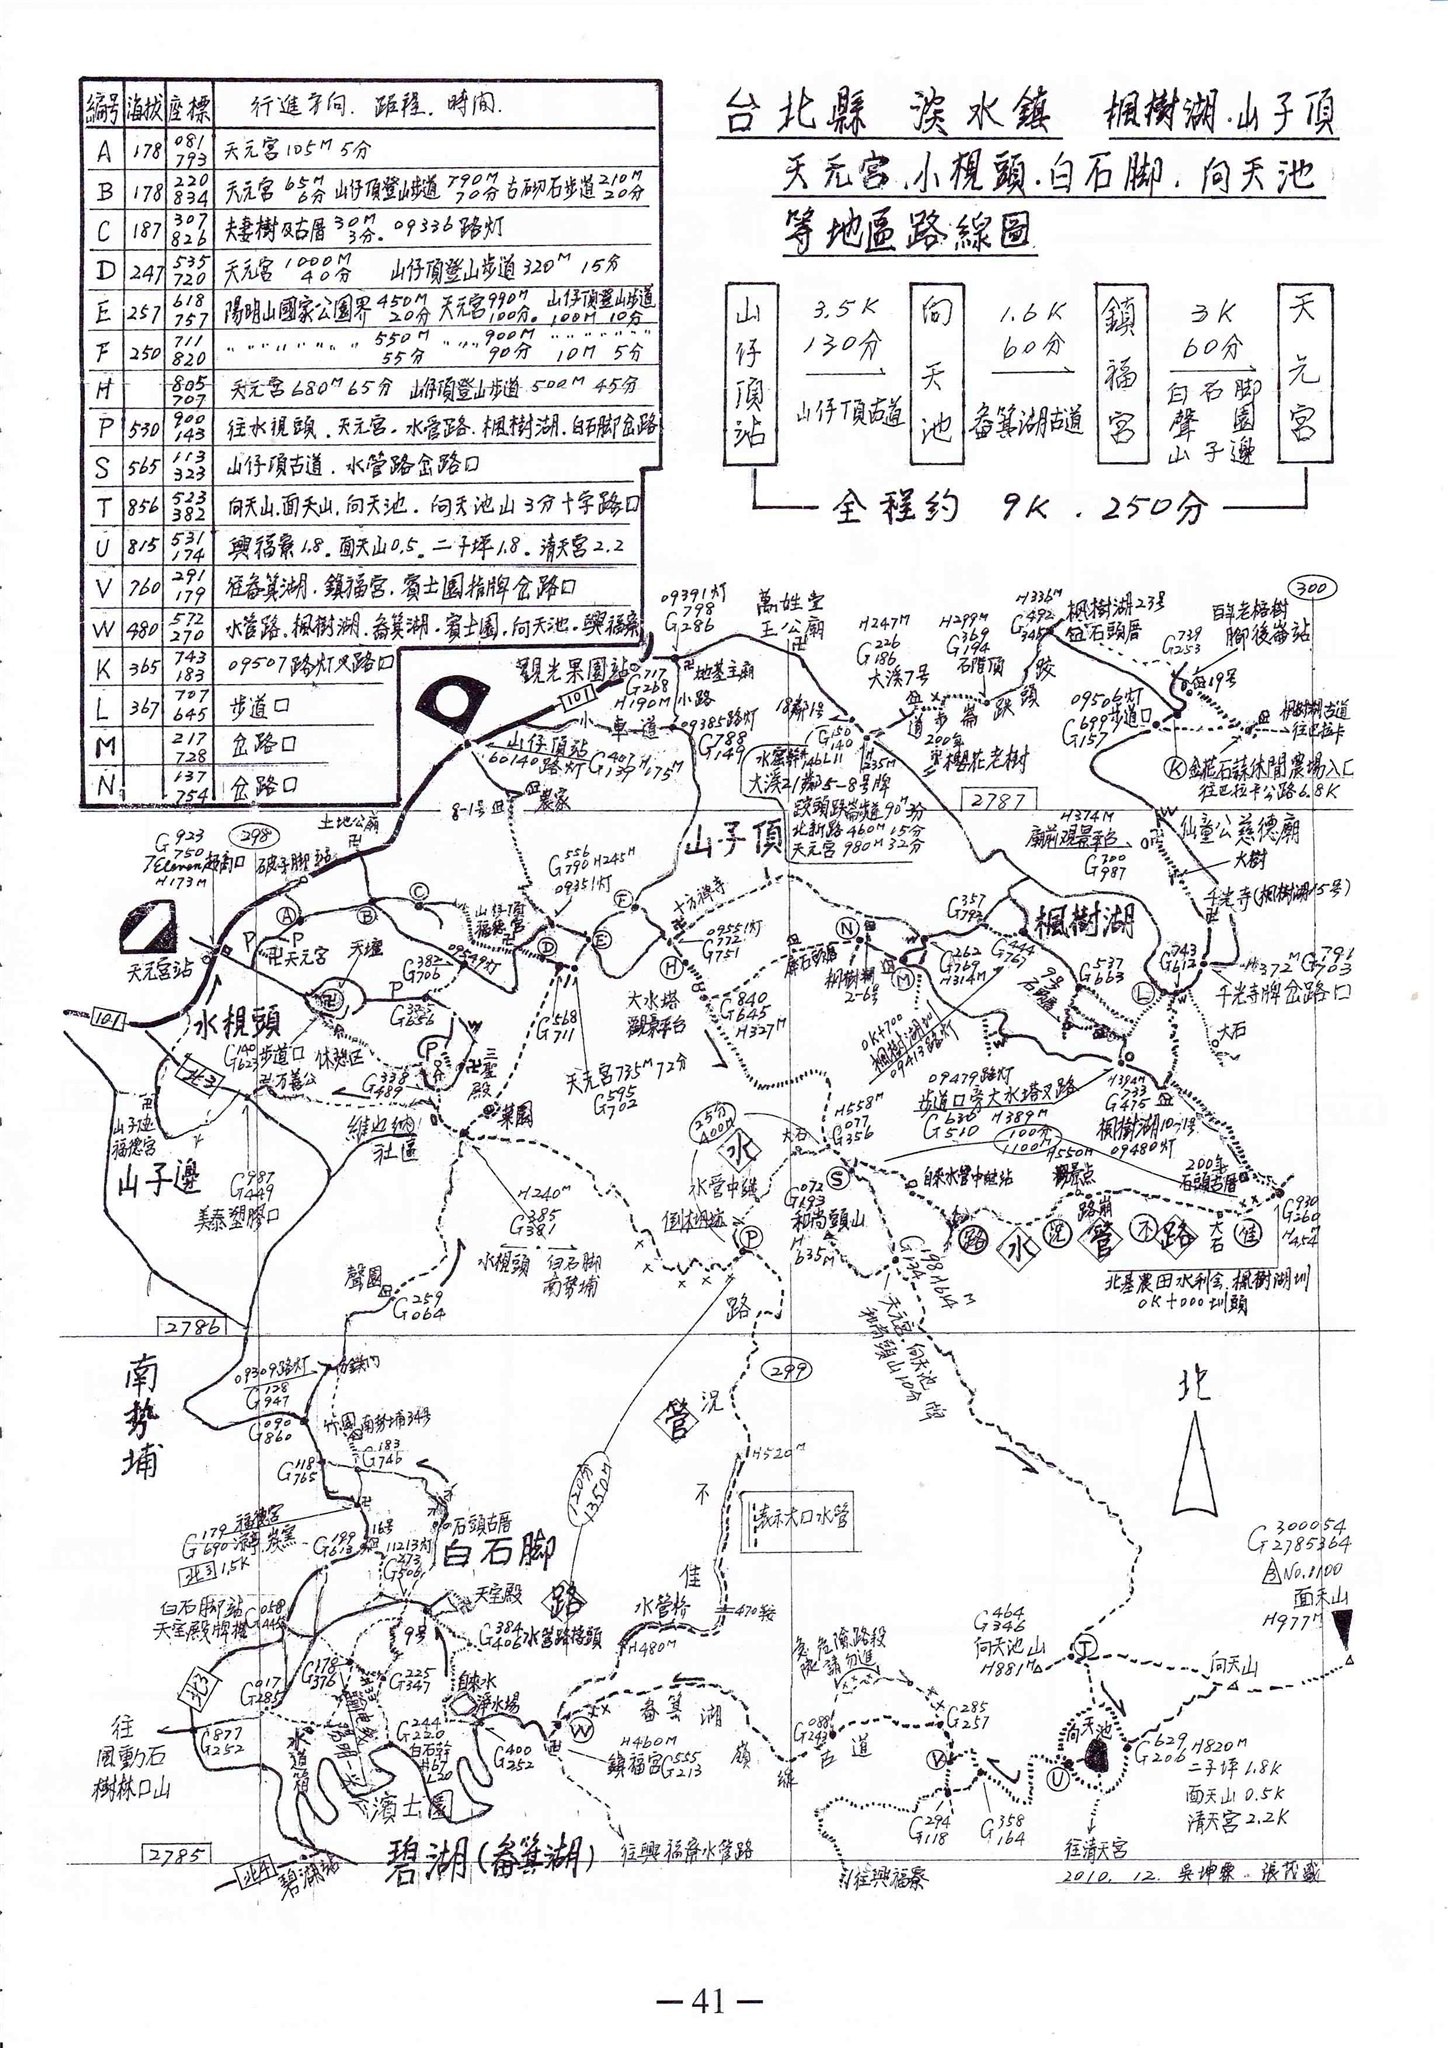 台北縣 淡水鎮 楓樹湖.山子頂
天元宮.小梘頭.白石腳.向天池
等地區路線圖
編号 海拔 座標 行進方向. 距程. 時間.
A 178 081 793 天元宮105M 5分
B 178 220 834 天元宮 65M 6分 山仔頂登山步道 790M 70分 古砌石步道 210M 20分
C 187 307 826 夫妻樹及古厝 30M 3分. 09336路灯
D 247 535 720 天元宮 1000M 40分 山仔頂登山步道 320M 15分
E 257 618 757 陽明山國家公園界 450M 20分 天元宮 990M 100分. 山仔頂登山步道 100M 10分
F 250 711 820 〃 〃 〃 〃 〃 〃 〃 550M 55分 〃 〃 〃 900M 90分 〃 〃 〃 〃 〃 〃 〃 10M 5分
H 805 707 天元宮 680M 65分 山仔頂登山步道 500M 45分
P 530 900 143 往水梘頭.天元宮.水管路.楓樹湖.白石腳岔路
S 565 113 323 山仔頂古道.水管路岔路口
T 856 523 382 向天山.面天山.向天池.向天池山3分十字路口
U 815 531 174 興福寮1.8.面天山0.5.二子坪1.8.清天宮2.2
V 760 291 179 往畚箕湖.鎮福宮.賓士園指牌岔路口
W 480 572 270 水管路.楓樹湖.畚箕湖.賓士園.向天池.興福寮
K 365 743 183 09507路灯叉路口
L 367 707 645 步道口
M 217 728 岔路口
N 137 754 岔路口
山仔頂站
3.5K
130分
山仔頂古道
向天池
1.6K
60分
畚箕湖古道
鎮福宮
3K
60分
白石腳
聲園
山子邊
天元宮
全程約 9K.250分
09391灯
G 798 286
萬姓堂
王公廟
觀光果園站
G 717 268
H190M
地基主廟
小路
101
小車道
09385路灯
G 788 149
山仔頂站
60140路灯 G 407 139 H175M
8-1号
農家
H247M
G 226 186
大溪7号
H299M
G 369 194
石階頂
H336M
G 492 345
楓樹湖23号
石頭厝
300
百年老榕樹
腳後崙站
G 739 253
19号
09506灯
G 699 157 步道口
楓樹湖古道
往巴拉卡
K 金花石蒜休閒農場入口
往巴拉卡公路6.8K
18鄰1号
G 150 140
H235M
200年
櫻花老樹
大溪21鄰5-8号牌
跌頭跌崙步道90M 3分
北新路460M 15分
天元宮980M 32分
2787
H374M
廟前观景平台
G 700 987
仙童公慈德廟
大樹
千光寺(楓樹湖15号)
土地公廟
G 923 750
7Eleven超商口
H173M
298
天元宮站
A
B
C
天元宮
天壇
山仔頂
福德宮
G 556 790 H245M
09351灯
山子頂
D
E
F
H
十方禪寺
09551灯
G 772 751
大水塔
觀景平台
G 840 645
H327M
N
M
楓樹湖
2-6号
G 262 769
H314M
G 357 792
楓樹湖
G 444 767
9号
G 537 663
G 743 612
L
H372M G 791 703
千光寺牌岔路口
大石
水梘頭
G 140 623 步道口
休憩区
万善公
G 382 706
09349灯
三聖殿
G 338 489
P
菜園
G 568 711
天元宮735M 72分
G 595 702
維也納
社區
0K+700
楓樹湖圳
09413路灯
09479路灯
步道口旁大水塔叉路
G 636 510 H389M
H394M
G 733 475
楓樹湖10-1号
09480灯
101
北3
山子边
福德宮
山子邊
G 987 449
美泰塑膠口
25分
400M
水
H558M
G 077 356
大石
100分
1100M
水管中継
倒木坍坊
S
G 072 193
和尚頭山
H 635M
自來水管中継站
H550M
观景点
路崩
200年
石頭古厝
G 930 260
H454M
大石
路 水 況 管 不 路 佳
G 198 134 H614M
天元宮.向天池
和尚頭山10分 牌
北基農田水利会.楓樹湖圳
0K+000圳頭
H240M
G 385 381
水梘頭 白石腳
南勢埔
聲園
G 259 064
2786
南勢埔
09309路灯
G 128 947
G 090 860
竹園
南勢埔34号
G 118 765
G 183 746
P
路
管
況
不
佳
299
H520M
表示大口水管
120分
1350M
北
G 300054
G 2785364
No.1100
面天山
H977M
G 179 690
福德宮
涼亭.炭窯
北3 1.5K
G 199 673
16号
11213灯
G 273 506
石頭古厝
白石腳
天宝殿
白石腳站
天宝殿牌楼
G 058 445
9号
G 384 406 水管路接頭
水管橋
470接
H480M
路
北3
G 017 285
G 178 376
G 225 347
自來水
淨水場
往
風動石
樹林口山
G 877 252
水道箱
G 244 220
白石幹
G 400 252
W
H460M
鎮福宮 G 555 213
畚箕湖
嶺
古道
危險路段
請勿進
G 088 242
G 285 257
V
G 294 118
G 358 164
U
G 464 346
向天池山
H881M
T
向天山
向天池
G 629 206 H820M
二子坪1.8K
面天山0.5K
清天宮2.2K
往清天宮
濱士園
2785
北4
碧湖站
碧湖(畚箕湖)
往興福寮水管路
往興福寮
2010.12.吳坤霖.張茂盛
—41—